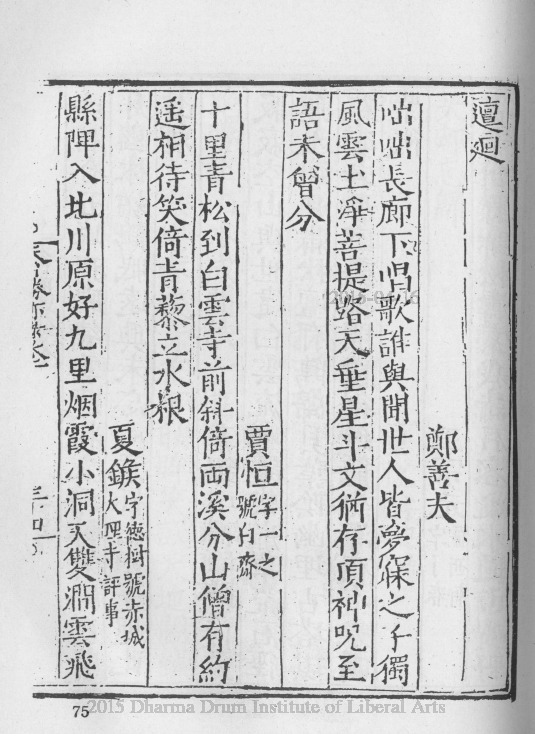 邅迴
鄭善夫
咄咄長廊下唱歌誰與聞世人皆夢寐之子獨
風雲土淨菩提路天垂星斗文猶存頂神咒至
語未曾分
賈恒字一之
號白齋
十里青松到白雲寺前斜倚兩溪分山僧有約
遥相待笑倚青藜立水根
夏鍭字德樹號赤城
大理寺評事
縣陴入北川原好九里烟霞小洞天雙澗雲飛
75
2015 Dharma Drum Institute of Liberal Arts